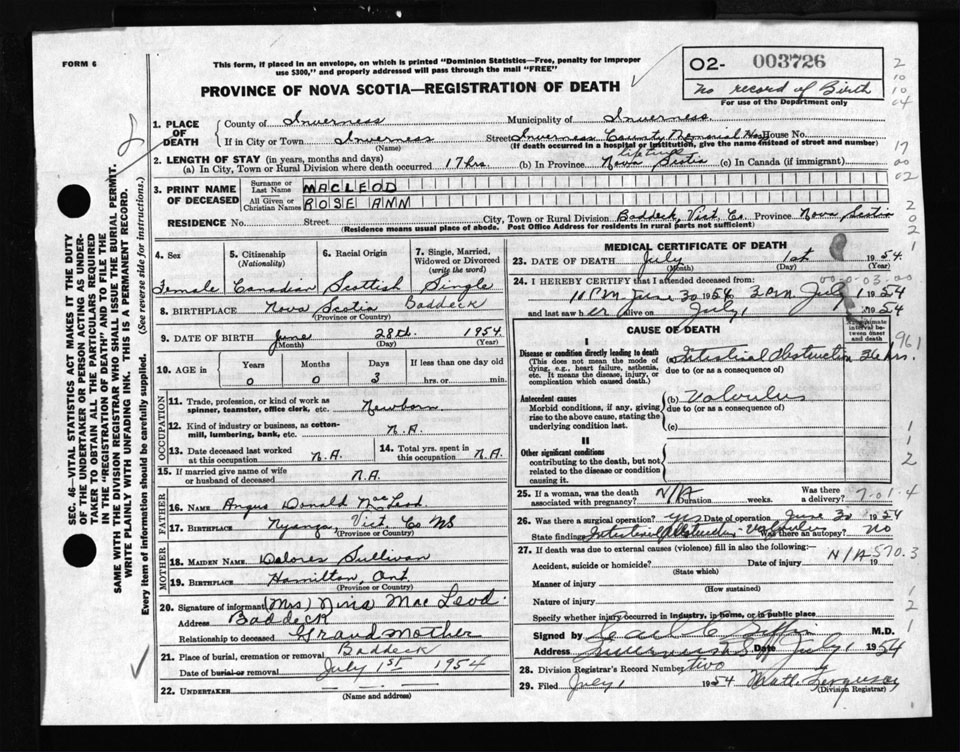 FORM 6
This form, if placed in an envelope, on which is printed "Dominion Statistics—Free, penalty for improper
use $300," and properly addressed will pass through the mail "FREE"
O2- 003726
no record of Birth
For use of the Department only
PROVINCE OF NOVA SCOTIA—REGISTRATION OF DEATH
1. PLACE OF DEATH
County of Inverness Municipality of Inverness
If in City or Town Inverness Street Inverness County Memorial Hos House No.
(Name) (If death occurred in a hospital or institution, give the name instead of street and number)
2. LENGTH OF STAY (in years, months and days)
(a) In City, Town or Rural Division where death occurred 17 hrs. (b) In Province lifetime Nova Scotia (c) In Canada (if immigrant)
3. PRINT NAME OF DECEASED
Surname or Last Name MACLEOD
All Given or Christian Names ROSE ANN
RESIDENCE No. Street City, Town or Rural Division Baddeck, Vict. Co. Province Nova Scotia
(Residence means usual place of abode. Post Office Address for residents in rural parts not sufficient)
4. Sex Female
5. Citizenship (Nationality) Canadian
6. Racial Origin Scottish
7. Single, Married, Widowed or Divorced (write the word) Single
8. BIRTHPLACE Nova Scotia Baddeck
(Province or Country)
9. DATE OF BIRTH June 28th. 1954
(Month) (Day) (Year)
10. AGE in Years Months Days If less than one day old
0 0 3 hrs. or min.
OCCUPATION
11. Trade, profession, or kind of work as
spinner, teamster, office clerk, etc. Newborn
12. Kind of industry or business, as cotton-
mill, lumbering, bank, etc. N.A.
13. Date deceased last worked
at this occupation N.A.
14. Total yrs. spent in
this occupation N.A.
15. If married give name of wife
or husband of deceased N.A.
FATHER
16. NAME Angus Donald MacLeod
17. BIRTHPLACE Nyanza, Vict. Co NS
(Province or Country)
MOTHER
18. MAIDEN NAME Dolores Sullivan
19. BIRTHPLACE Hamilton, Ont.
(Province or Country)
20. Signature of informant (Mrs) Nina MacLeod
Address Baddeck
Relationship to deceased Grandmother
21. Place of burial, cremation or removal Baddeck
Date of burial or removal July 1st 1954
22. UNDERTAKER
(Name and address)
MEDICAL CERTIFICATE OF DEATH
23. DATE OF DEATH July 1st 1954
(Month) (Day) (Year)
24. I HEREBY CERTIFY that I attended deceased from:
11 PM June 30 1954 3 P.M. July 1 1954
and last saw her alive on July 1 1954
CAUSE OF DEATH
Approximate interval between onset and death
I
Disease or condition directly leading to death
(This does not mean the mode of
dying, e.g., heart failure, asthenia,
etc. It means the disease, injury, or
complication which caused death.)
(a) Intestinal Obstruction 36 hrs.
due to (or as a consequence of)
Antecedent causes
Morbid conditions, if any, giving
rise to the above cause, stating the
underlying condition last.
(b) Volvulus
due to (or as a consequence of)
(c)
II
Other significant conditions
contributing to the death, but not
related to the disease or condition
causing it.
25. If a woman, was the death
associated with pregnancy? N/A Duration weeks. Was there a delivery?
26. Was there a surgical operation? yes Date of operation June 30 1954
State findings Intestinal Obstruction - Volvulus Was there an autopsy? no
27. If death was due to external causes (violence) fill in also the following:—
Accident, suicide or homicide? Date of injury N/A 19
(State which)
Manner of injury
(How sustained)
Nature of injury
Specify whether injury occurred in industry, in home, or in public place
Signed by M.D.
Address Inverness Date July 1 1954
28. Division Registrar's Record Number two
29. Filed July 1 1954 Matt. Ferguson
(Division Registrar)
570.3
SEC. 46—VITAL STATISTICS ACT MAKES IT THE DUTY
OF THE UNDERTAKER OR PERSON ACTING AS UNDER-
TAKER TO OBTAIN ALL THE PARTICULARS REQUIRED
IN THE "REGISTRATION OF DEATH" AND TO FILE THE
SAME WITH THE DIVISION REGISTRAR WHO SHALL ISSUE THE BURIAL PERMIT.
WRITE PLAINLY WITH UNFADING INK. THIS IS A PERMANENT RECORD.
Every item of information should be carefully supplied. (See reverse side for instructions.)